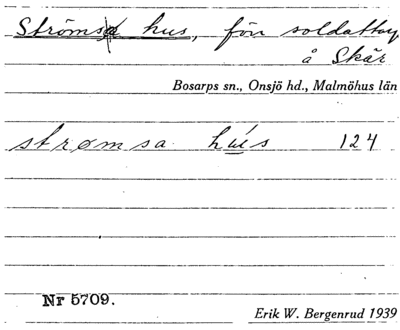 Ströms hus, förr soldattorp
å Skär
Bosarps sn., Onsjö hd., Malmöhus län
strømsa hús 124
Nr 5709.
Erik W. Bergenrud 1939